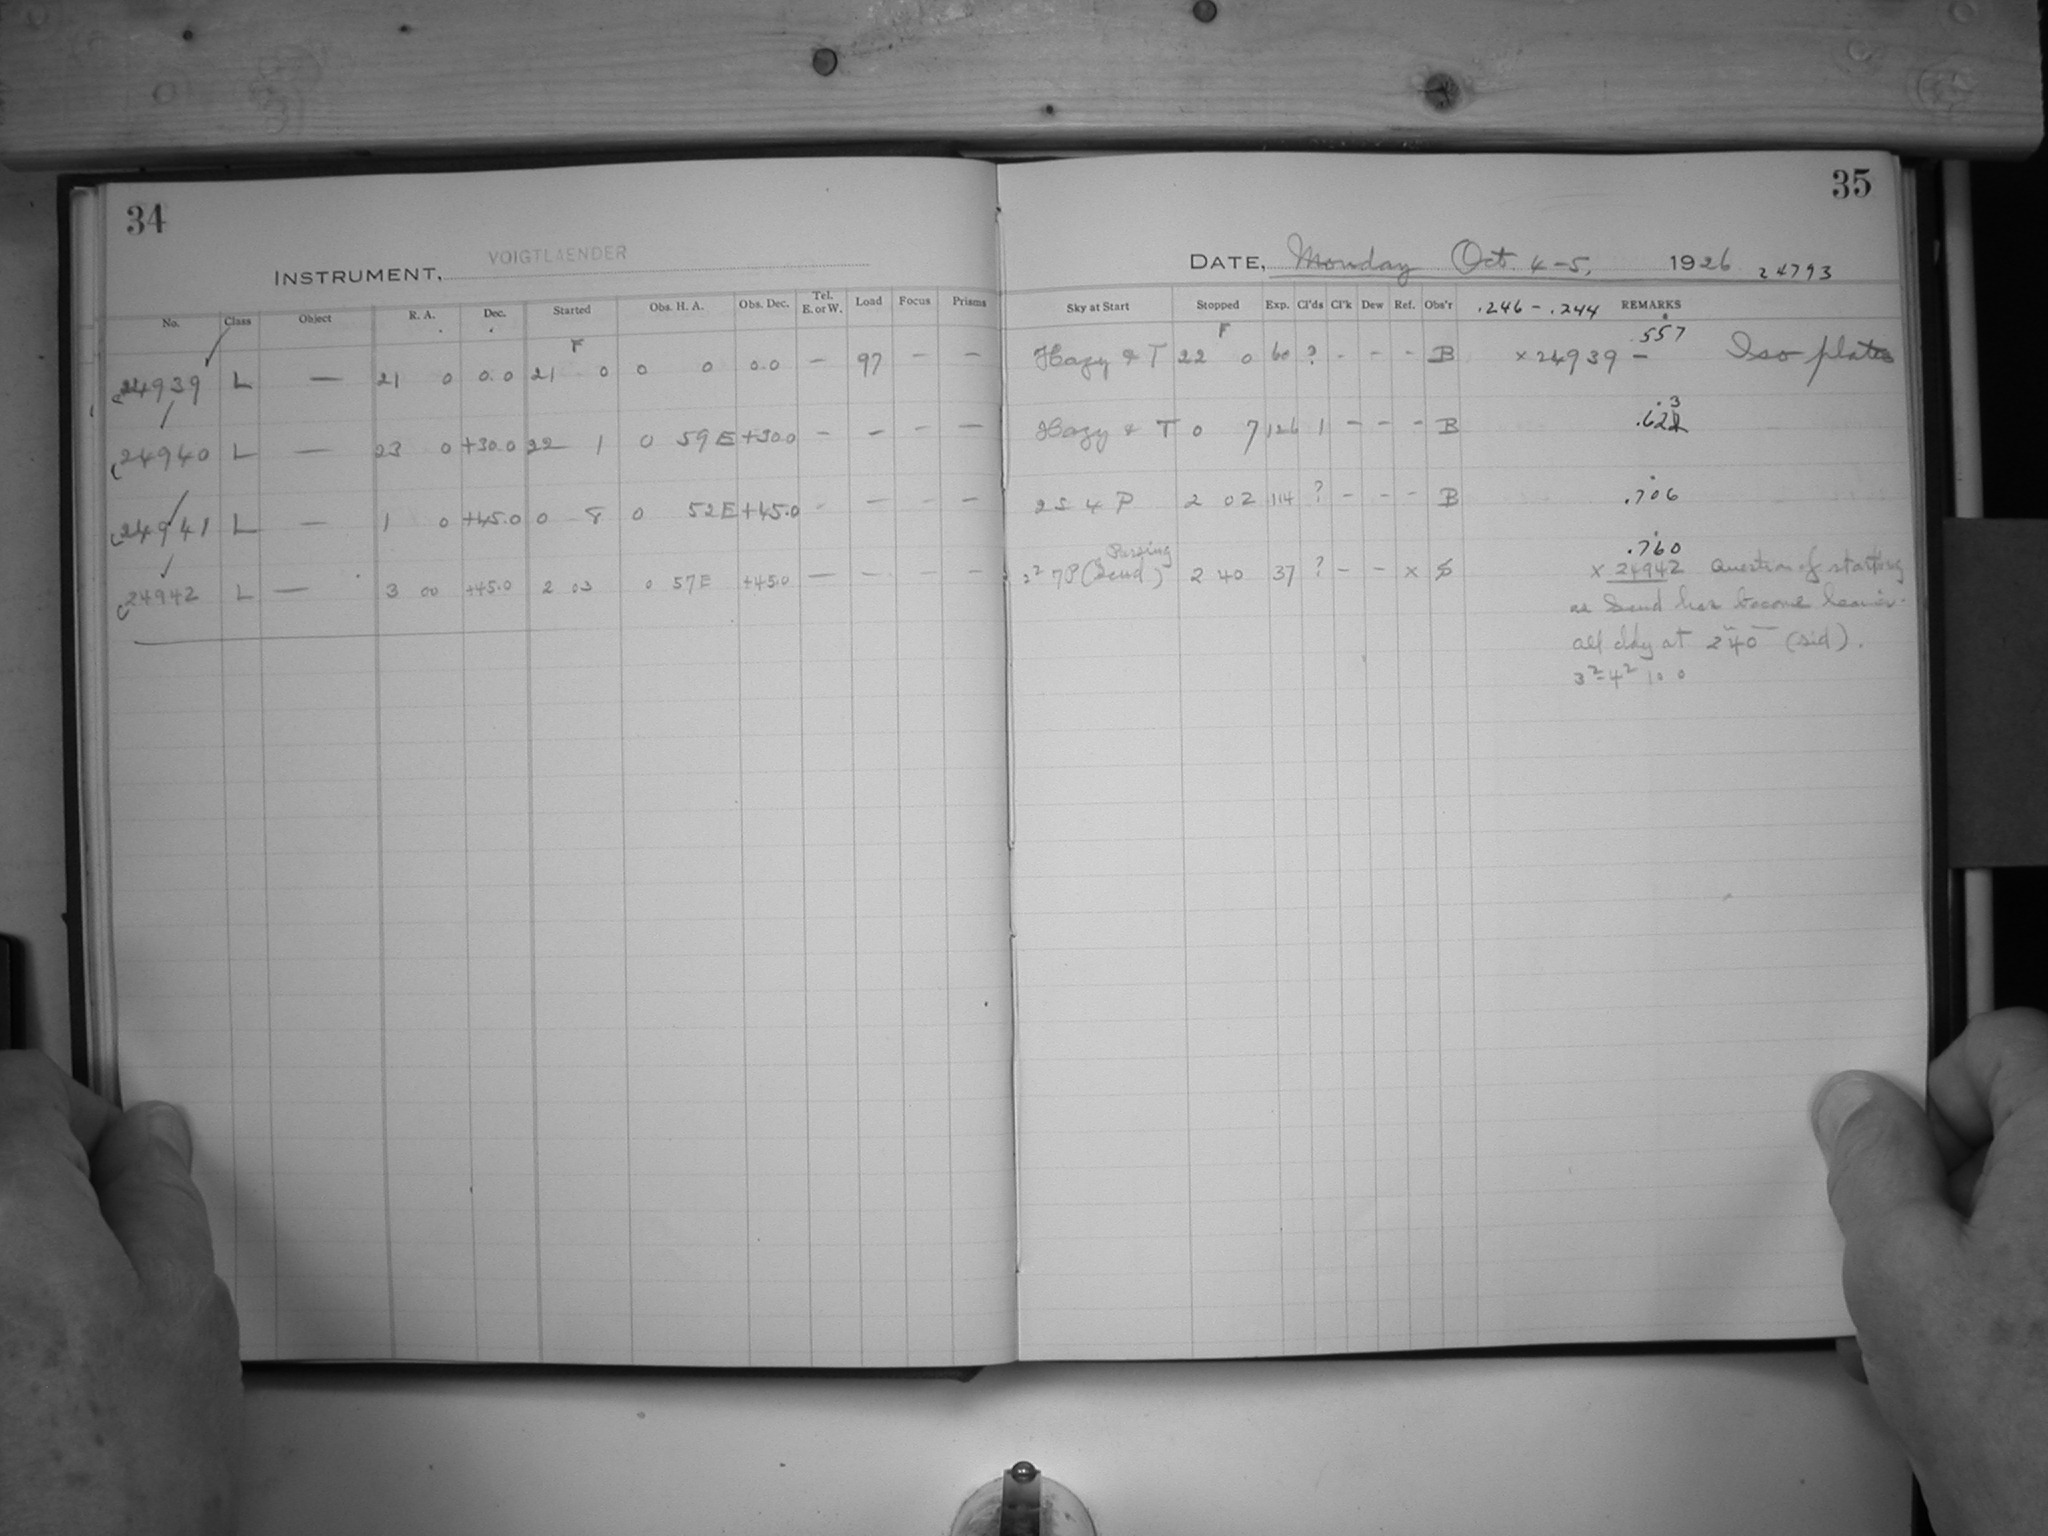 34
VOIGTLAENDER
INSTRUMENT,
No. Class Object R. A. Dec. Started Obs. H. A. Obs. Dec. Tel. E. or W. Load Focus Prisms
F
24939 L — 21 0 0.0 21 0 0 0 0.0 — 97 — —
24940 L — 23 0 +30.0 22 1 0 59 E +30.0 — — — —
24941 L — 1 0 +45.0 0 8 0 52 E +45.0 - — - —
24942 L — 3 00 +45.0 2 03 0 57 E +45.0 — — — —
35
DATE, Monday Oct. 4-5, 1926 24793
Sky at Start Stopped Exp. Cl'ds Cl'k Dew Ref. Obs'r .246 - .244 REMARKS
F .557
Hazy & T 22 0 60 ? - - - B × 24939 — Iso plate
3
Hazy & T 0 7 126 1 - - - B .622
2 S 4 P 2 02 114 ? - - - B .706
Passing .760
2² 7P (Scud) 2 40 37 ? - - × × 24942 Question of starting
as Scud has become heavier.
all cldy at 2 40 (sid).
3²-4² 10 0